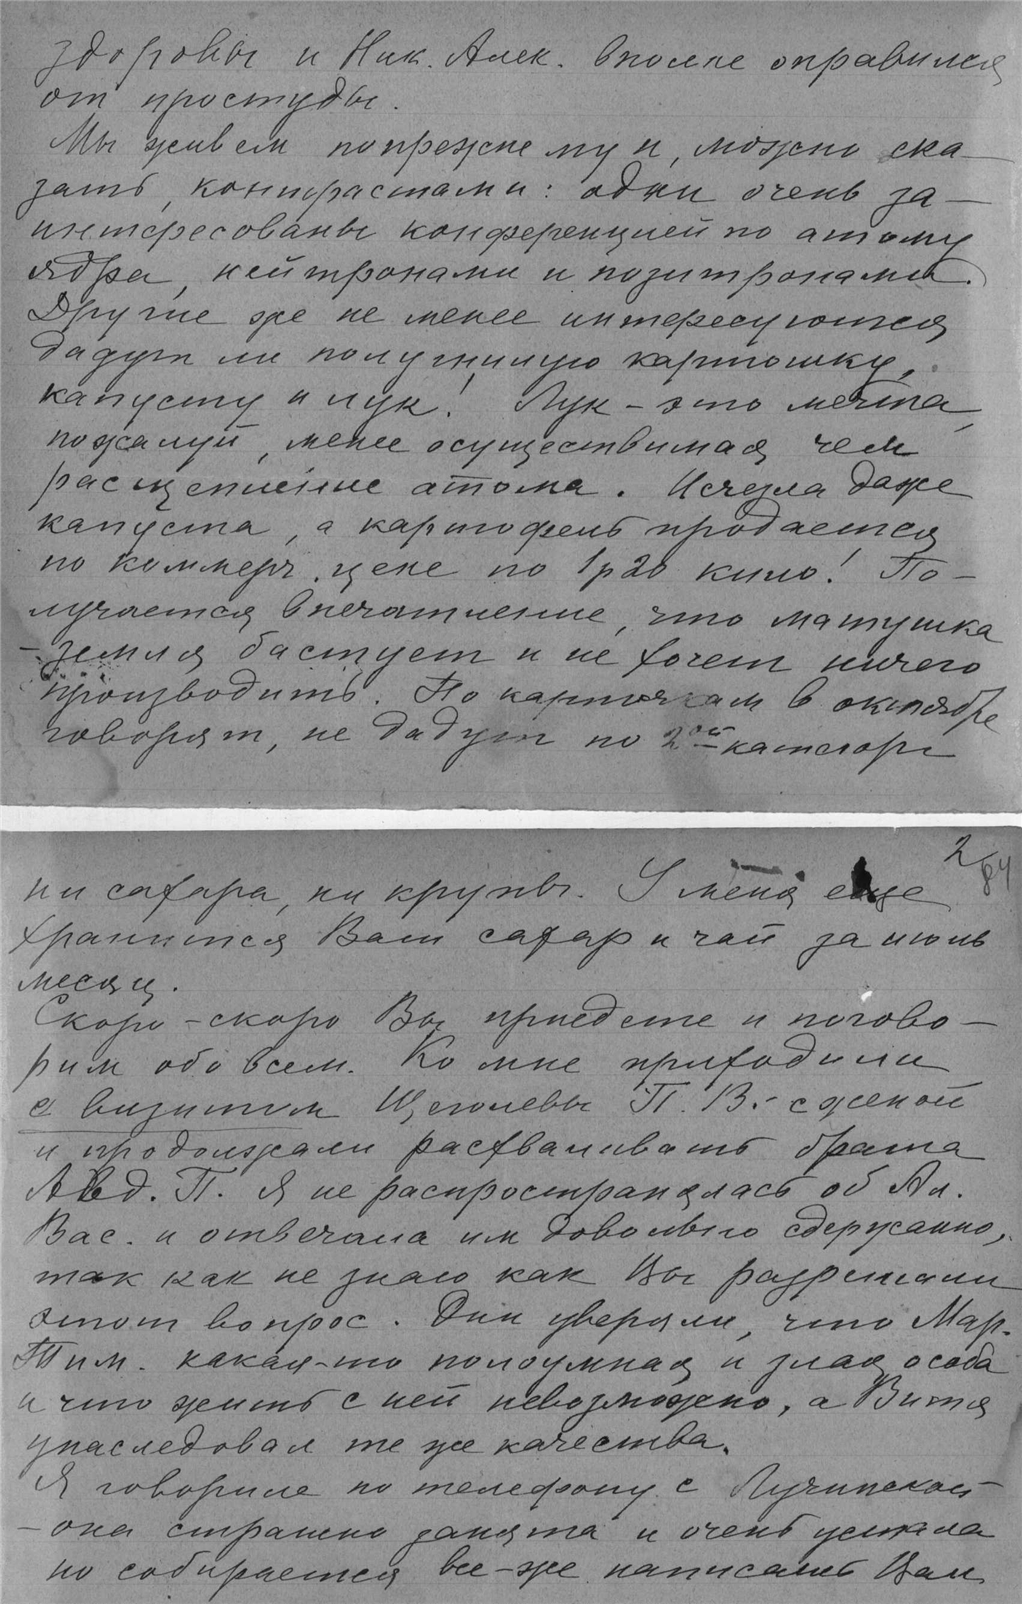 здоровы и Ник. Алек. вполне оправился
от простуды.
Мы живем попрежнему и, можно ска-
зать, контрастами: одни очень за-
интересованы конференцией по атому
ядра, нейтронами и позитронами.
Другие же не менее интересуются
дадут ли полугнилую картошку,
капусту и лук! Лук - это мечта,
пожалуй, менее осуществимая чем
расщепление атома. Исчезла даже
капуста, а картофель продается
по коммерч. цене по 1р20 кило! По-
лучается впечатление, что матушка
- земля бастует и не хочет ничего
производить. По карточкам в октябре
говорят, не дадут по 2ой категори
2/84
ни сахара, ни крупы. У меня еще
хранится Ваш сахар и чай за июль
месяц.
Скоро-скоро Вы приедете и погово-
рим обо всем. Ко мне приходили
с визитом Щеголевы П. В. - с женой
и продолжали расхваливать брата
Авд. П. Я не распространялась об Ал.
Вас. и отвечала им довольно сдержанно,
так как не знаю как Вы разрешили
этот вопрос. Они уверяли, что Мар.
Тим. какая-то полоумная и злая особа
и что жить с ней невозможно, а Витя
унаследовал те же качества.
Я говорила по телефону с Лучинской
- она страшно занята и очень устала
но собирается все-же написать Вам